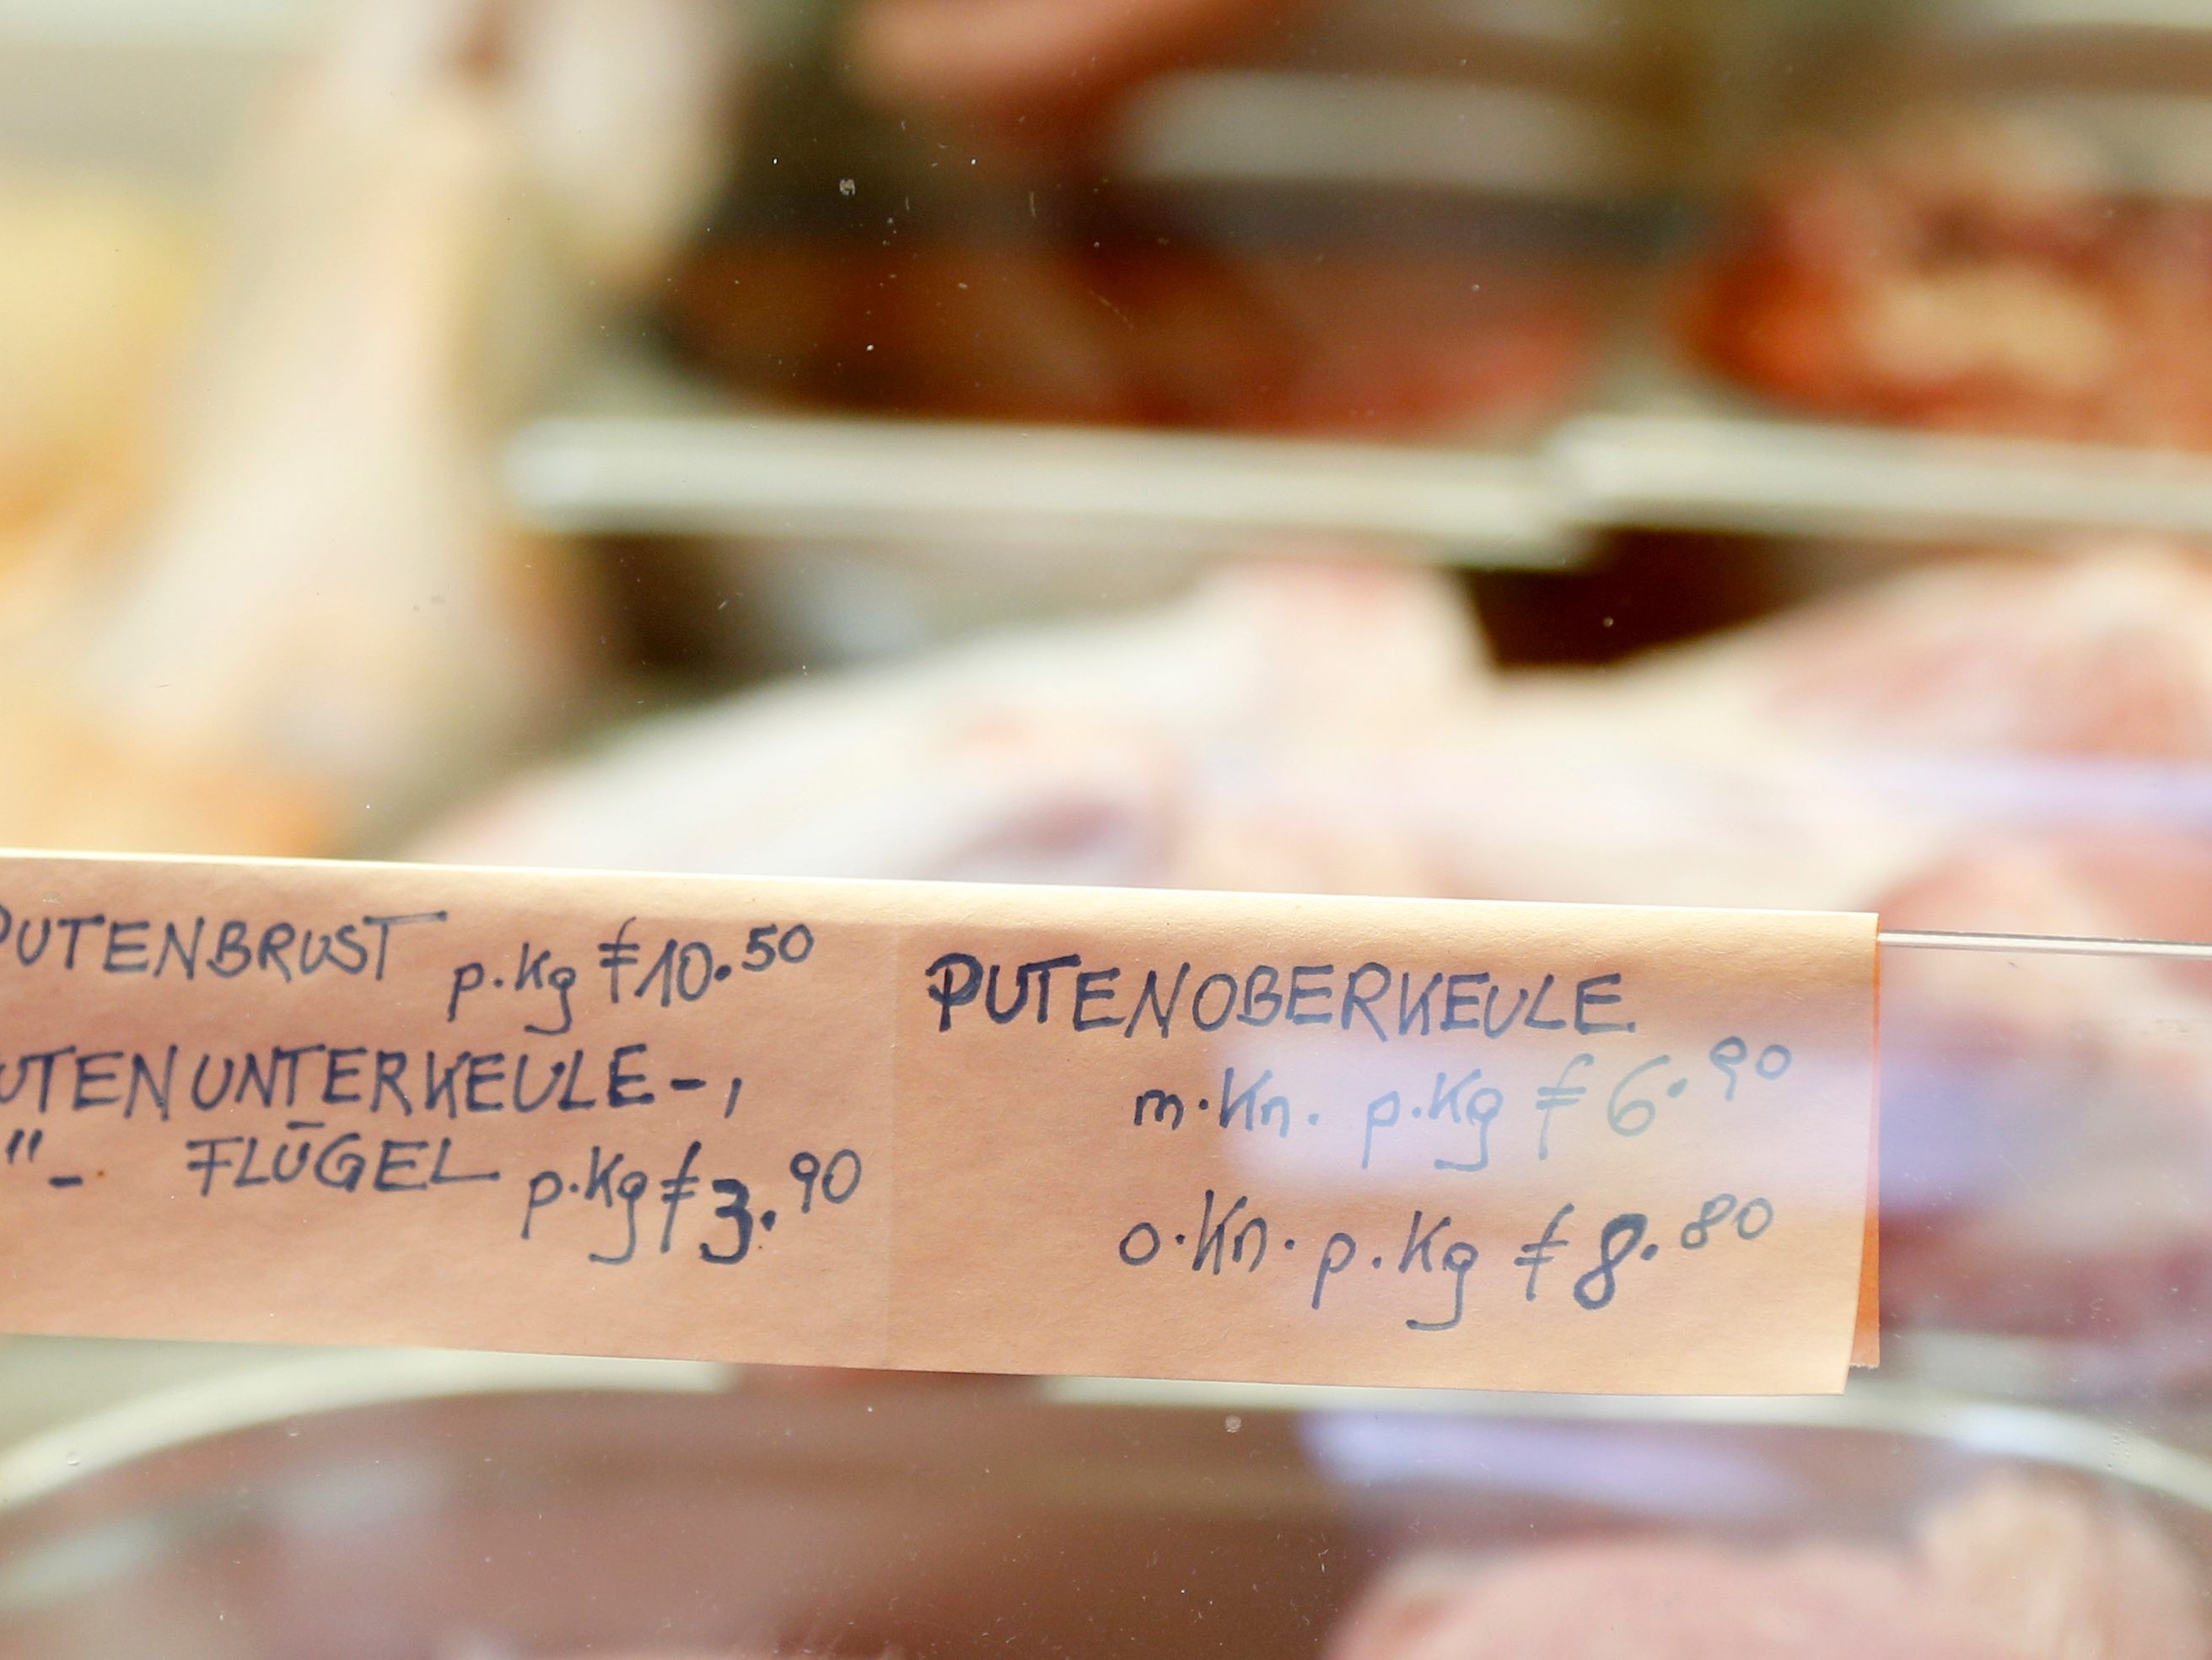 PUTENBRUST p.Kg €10.50
UTENUNTERKEULE-,
"-. FLÜGEL p.Kg €3.90
PUTENOBERKEULE
m.Kn. p.Kg €6.90
o.Kn. p.Kg €8.80